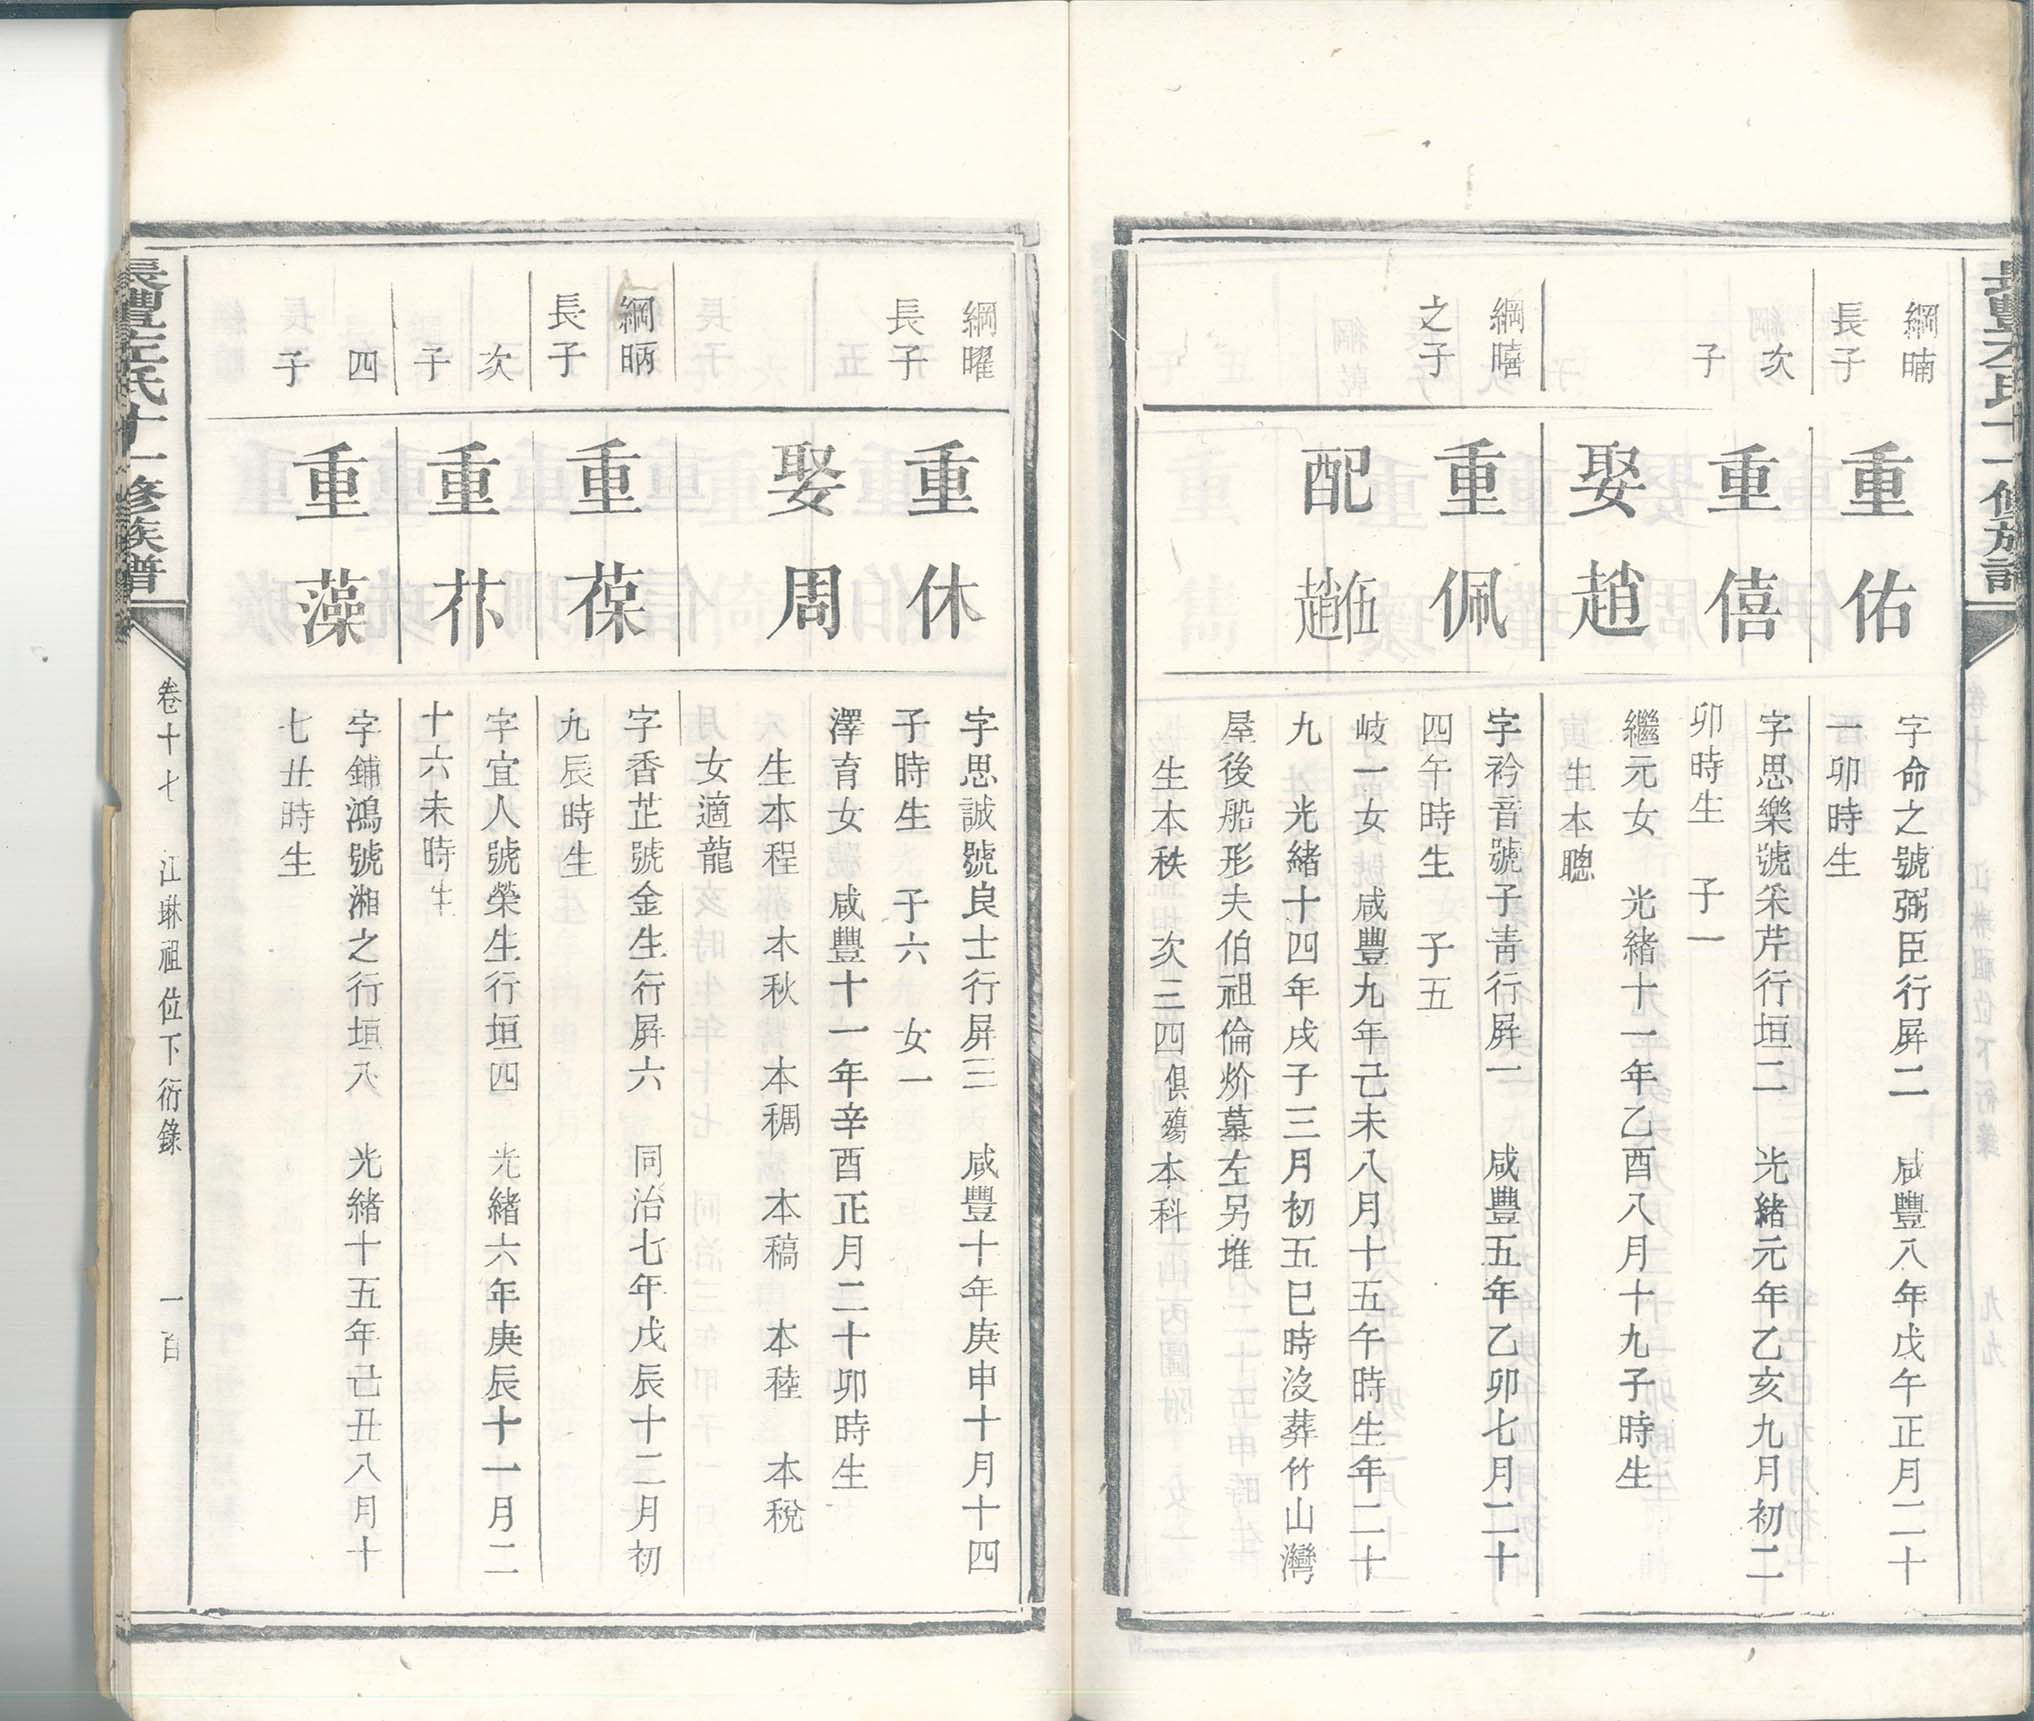 綱暔
長子
重佑
字命之號弼臣行屛二　咸豐八年戊午正月二十
一卯時生
次
子
重僖
字思樂號釆芹行垣二　光緒元年乙亥九月初二
卯時生　子一
娶趙
繼元女　光緒十一年乙酉八月十九子時生
生本聰
綱曦
之子
重佩
字衿音號子靑行屛一　咸豐五年乙卯七月二十
四午時生　子五
配伍趙
岐一女　咸豐九年己未八月十五午時生年二十
九　光緒十四年戌子三月初五巳時沒葬竹山灣
屋後船形夫伯祖倫炌墓左另堆
生本秩　次三四俱殤本科
綱曜
長子
重休
字思誠號良士行屛三　咸豐十年庚申十月十四
子時生　子六　女一
娶周
澤育女　咸豐十一年辛酉正月二十卯時生
生本程　本秋　本稠　本稿　本稑　本稅
女適龍
綱昞
長子
重葆
字香芷號金生行屛六　同治七年戊辰十二月初
九辰時生
次
子
重芣
字宜人號榮生行垣四　光緒六年庚辰十一月二
十六未時生
四
子
重藻
字鋪鴻號湘之行垣八　光緒十五年己丑八月十
七丑時生
長豐左氏十一修族譜
卷十七　江琳祖位下衍錄　一百